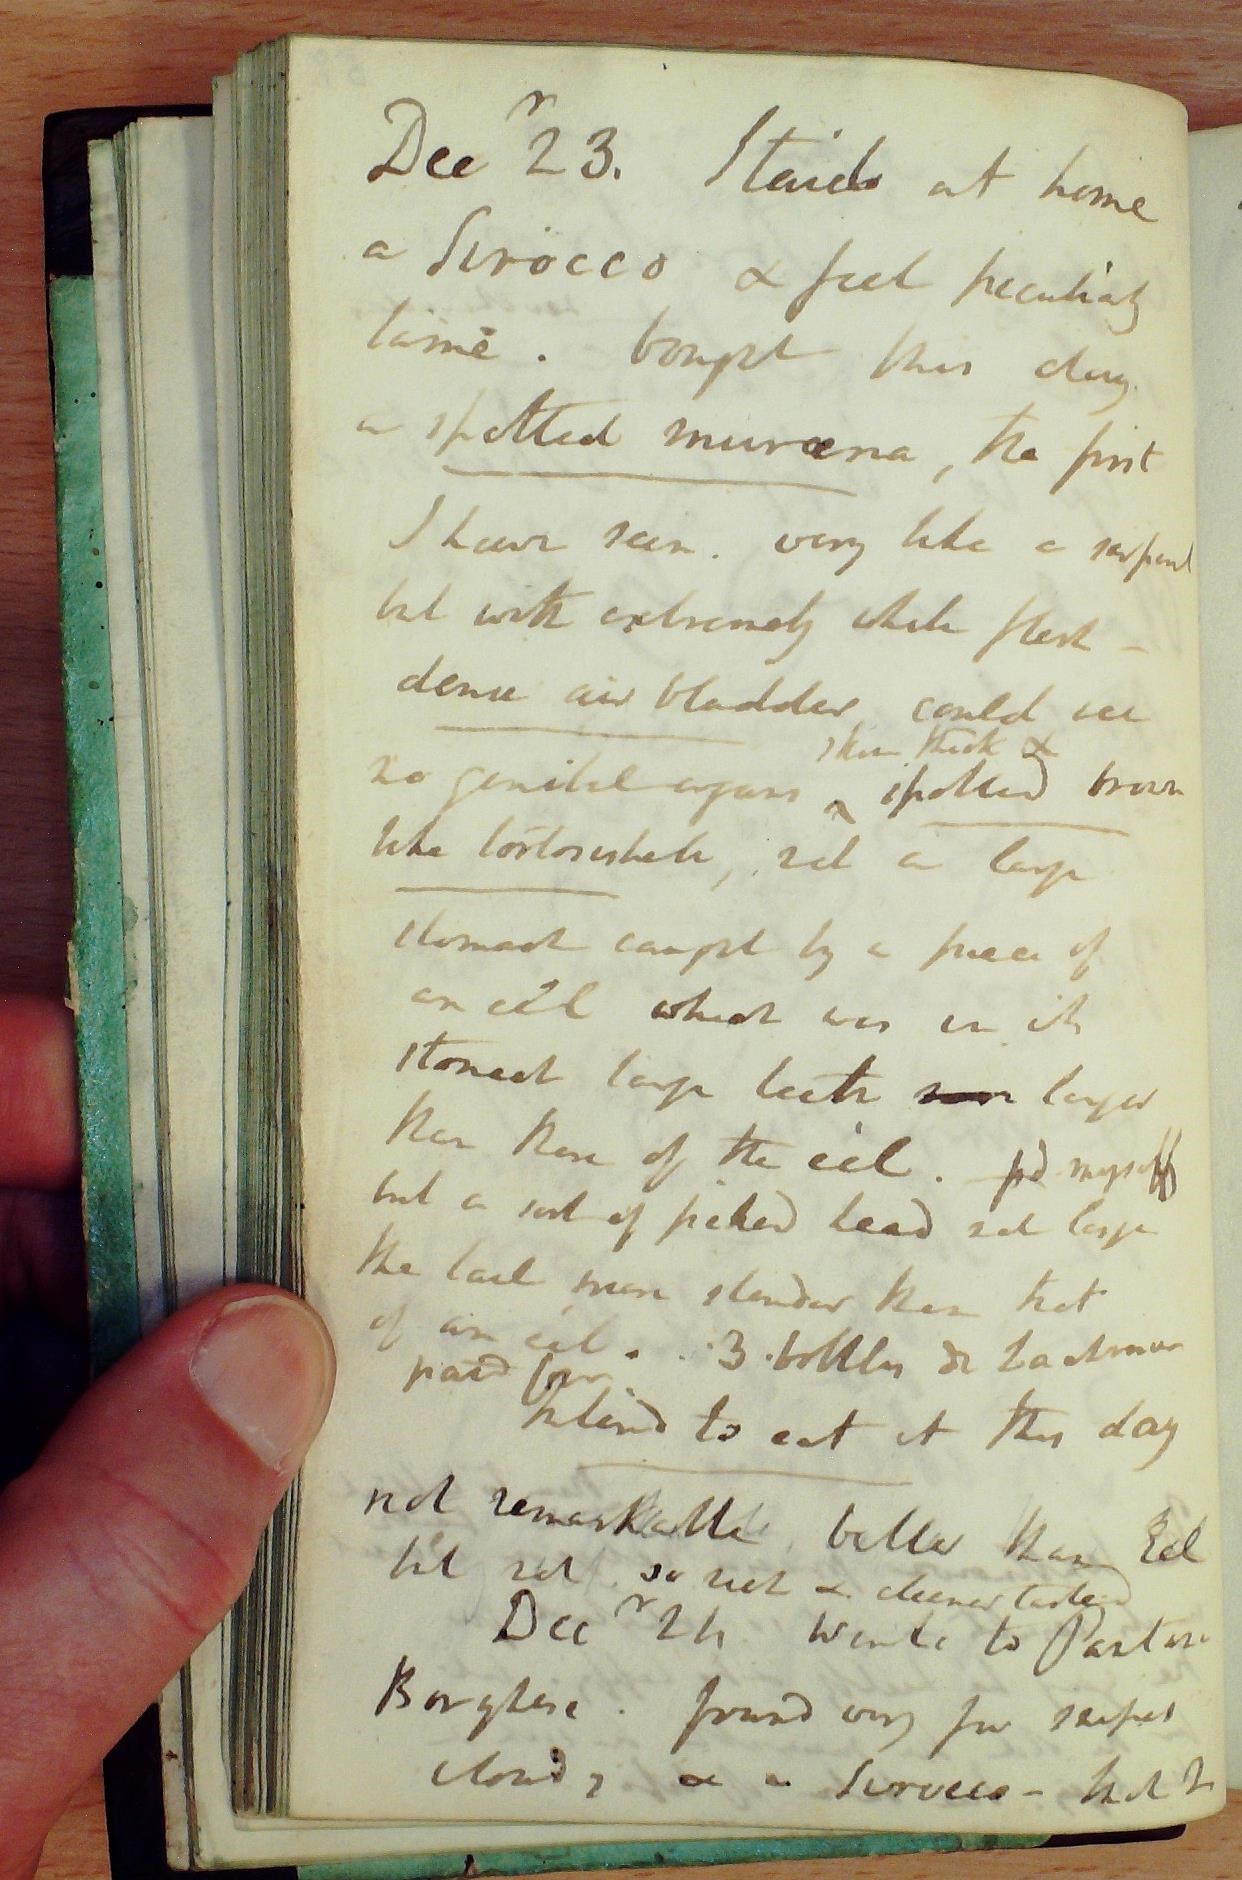 Decr 23. Staid at home
a Sirocco & feel peculiarly
lame. bought this day
a spotted muræna, the first
I have seen. very like a serpent
but with extremely white flesh -
dense air bladder, could see
skin thick &
no genital organs ^ spotted brown
like tortoiseshell, not a large
stomach caught by a piece of
an eel which was in its
stomach large teeth larger
than those of the eel. myself
but a sort of picked head not large
the tail more slender than that
of an eel. 3 bottles
paid for
to eat it this day
not remarkable better than Eel
but not so rich & cleaner tasted
Decr 24 Wente to Pantani
Borghese. found very few snipes
cloudy & a Sirocco -